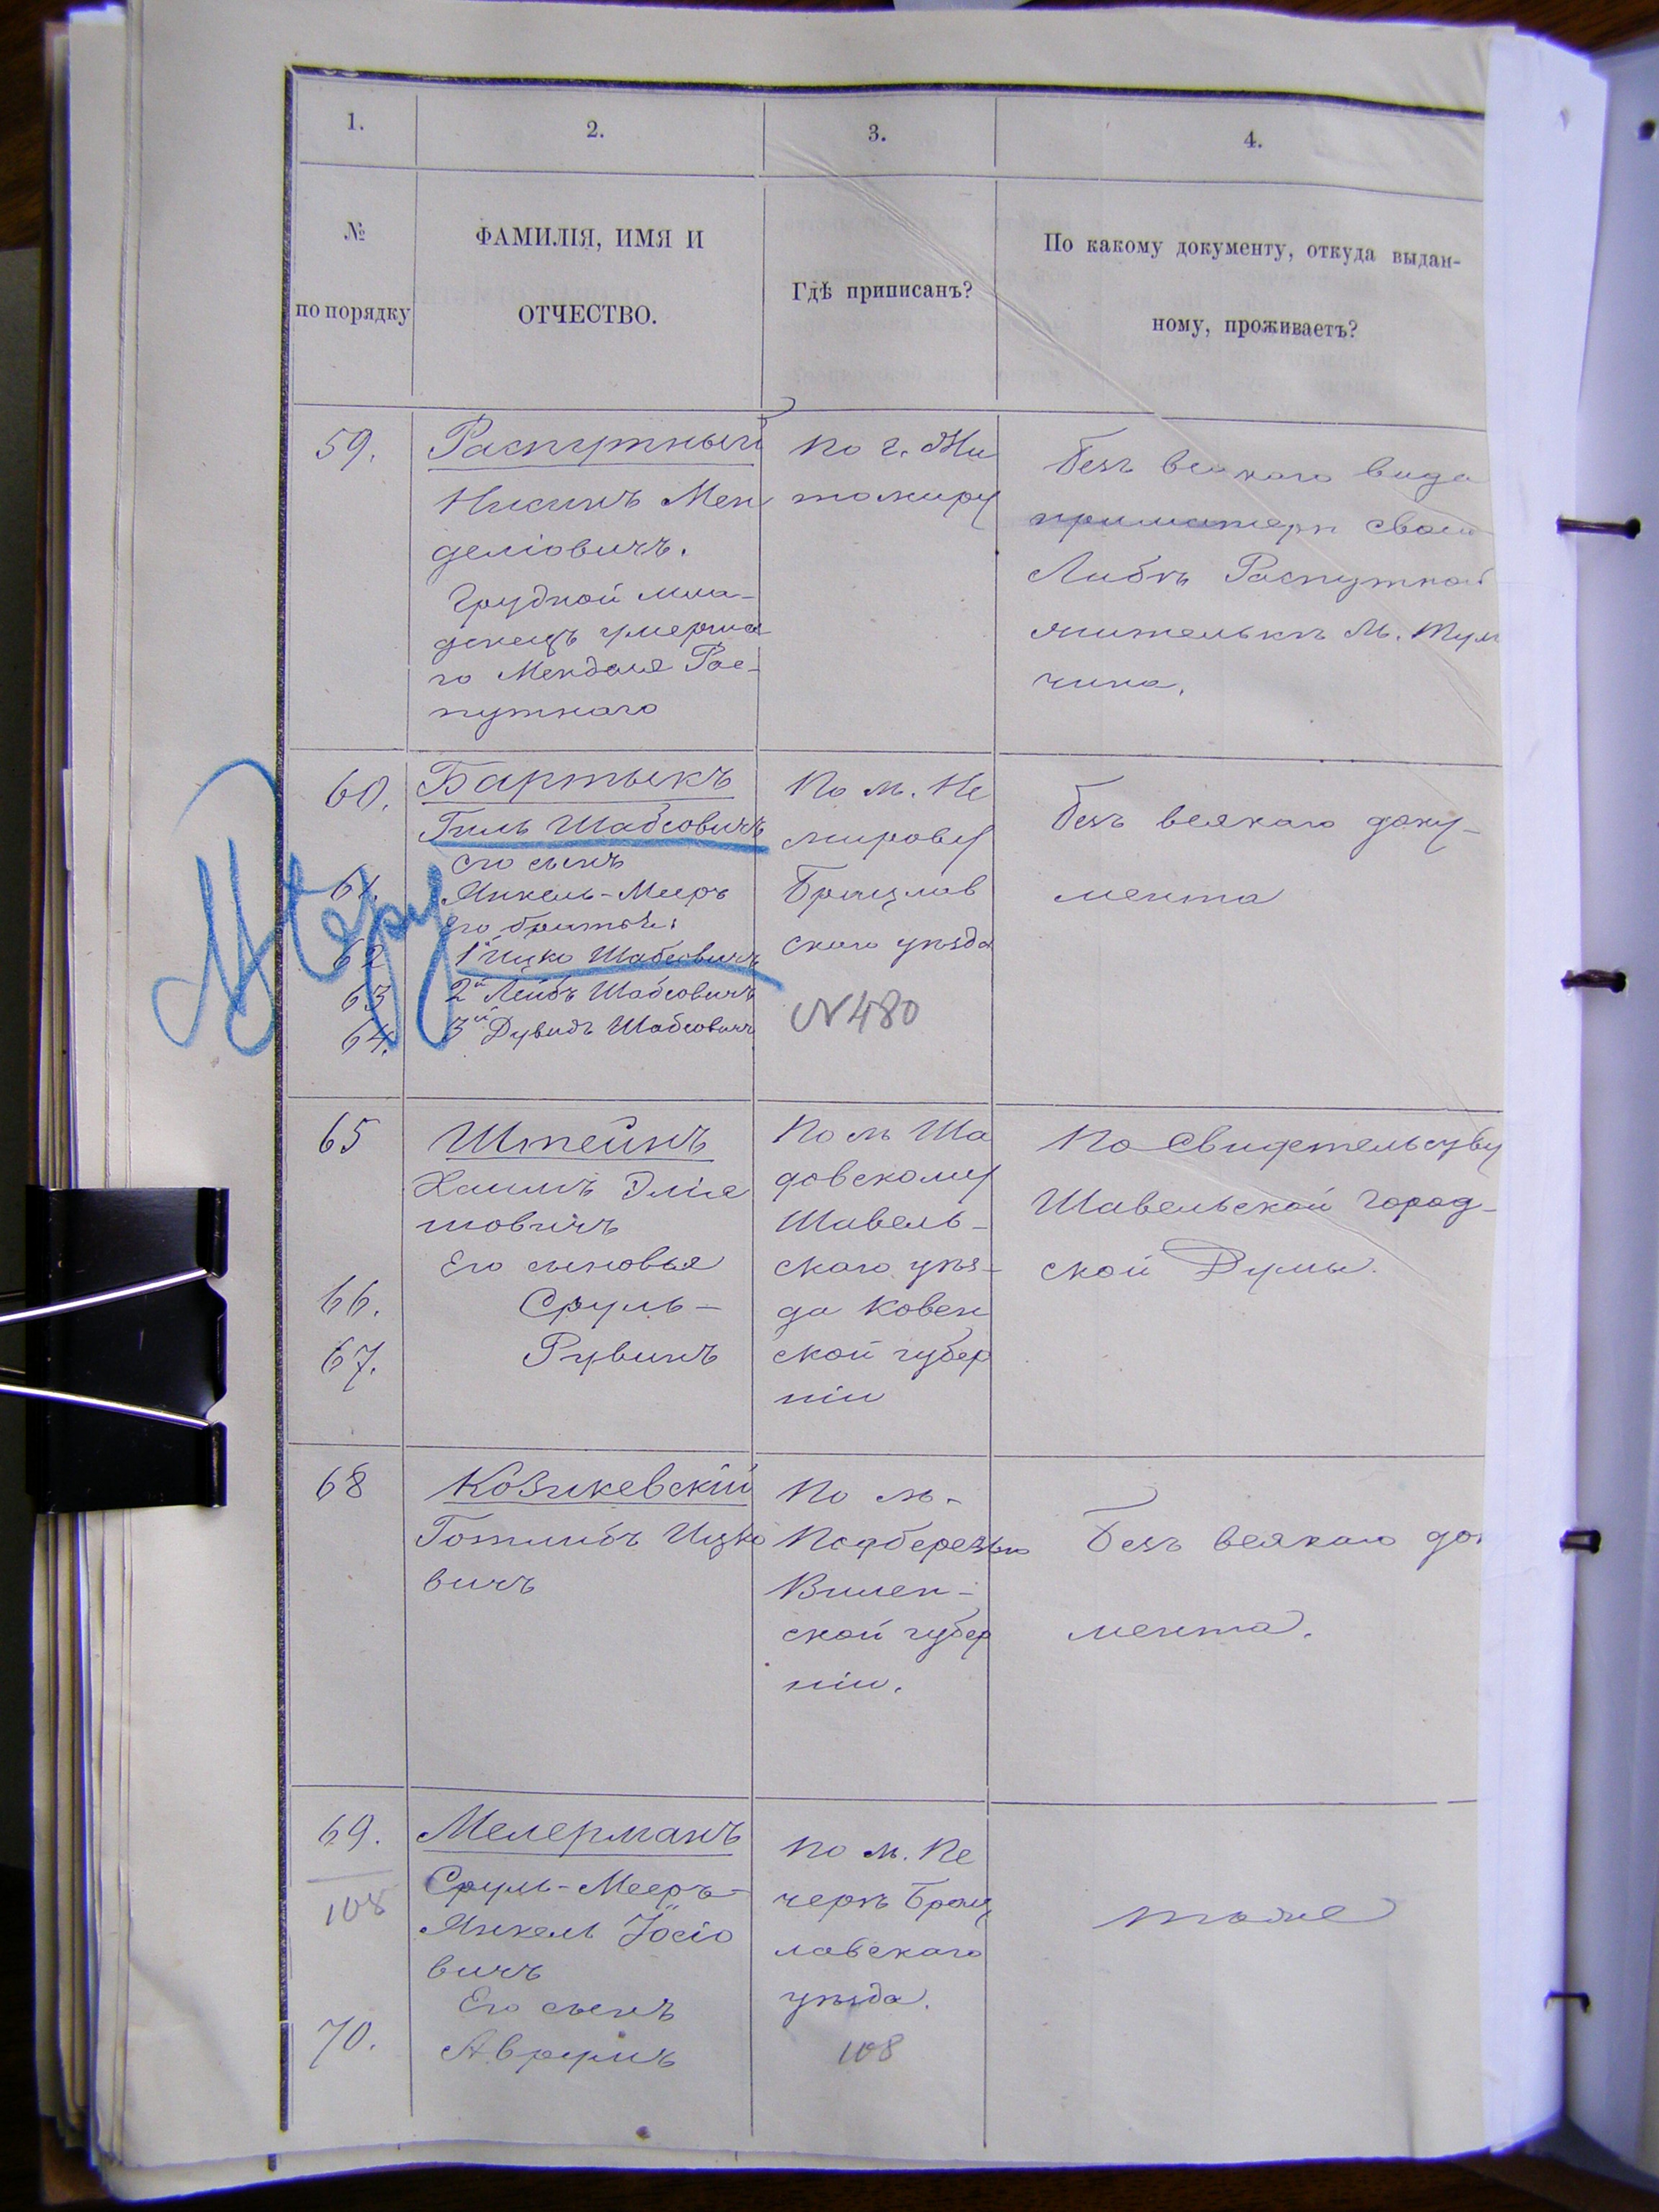 1.
2.
3.
4.
№
по порядку
ФАМИЛІЯ, ИМЯ И
ОТЧЕСТВО.
Гдѣ приписанъ?
По какому документу, откуда выдан-
ному, проживаетъ?
59.
Распутный
Нисинъ Мен
деліовичъ.
Грудной мла-
денецъ умерша
го Менделя Рас-
путнаго
по г. Жи
томиру
безъ всякаго вида
при матери своей
Либѣ Распутной
жителькѣ м. Туль
чина.
60.
Бартыкъ
Гиль Шабсовичъ
его сынъ
61.
Янкель-Мееръ
его братья:
62
1й Ицко Шабсовичъ
63
2й Лейбъ Шабсовичъ
64.
3й Дувидъ Шабсовичъ
По м. Не
мирову
Брацлав
скаго уѣзда
N 480
безъ всякаго доку-
мента
65
Штейнъ
Хаимъ Эліа
шовичъ
Его сыновья
66.
Сруль-
67.
Рувинъ
По м Ша
довскому
Шавель-
скаго уѣз-
да Ковен
ской губер
ніи
По Свидетельству
Шавельской город-
ской Думы.
68
Козикевскій
Готлибъ Ицко
вичъ
По м.
Подберезью
Вилен-
ской губер
ніи.
Безъ всякаго до
мента.
69.
108
Мелерманъ
Сруль-Мееръ-
Янкель Іосіо
вичъ
Его сынъ
70.
Аврумъ
по м. Пе
черѣ Брац
лавскаго
уѣзда.
108
тоже